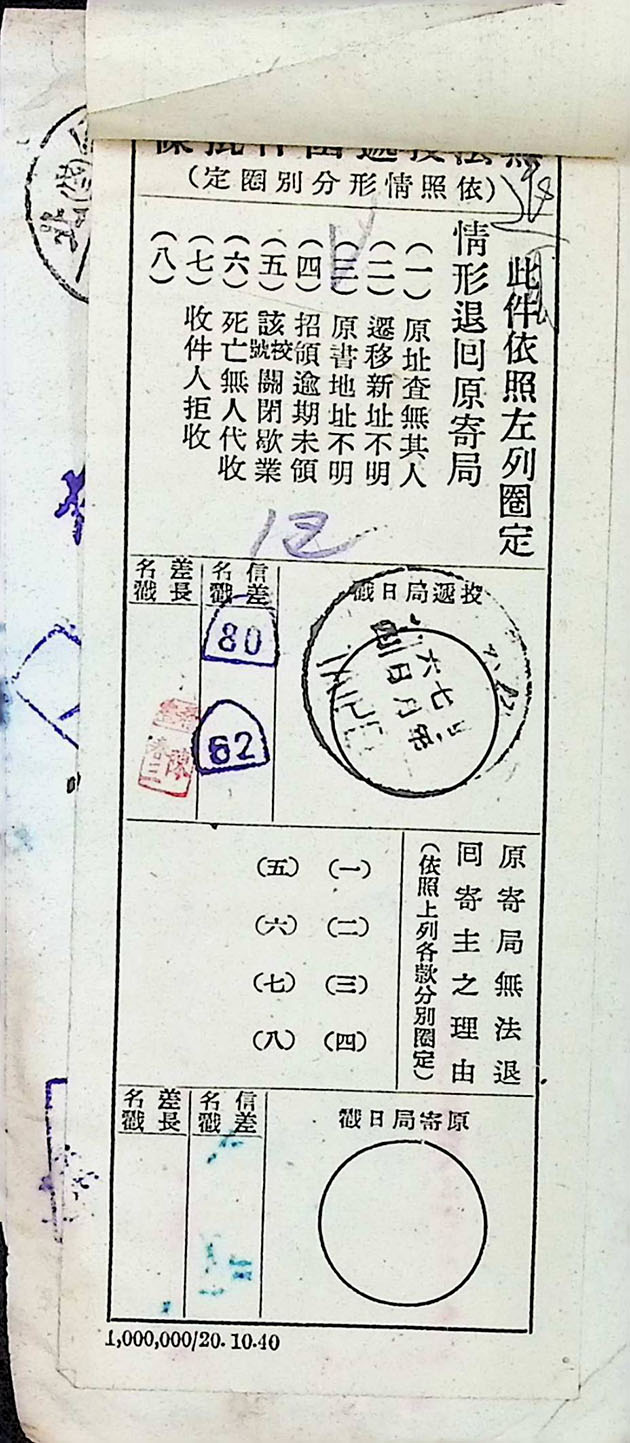 無法投遞函件批條
(依照情形分別圈定)
此件依照左列圈定
情形退回原寄局
(一) 原址查無其人
(二) 遷移新址不明
(三) 原書地址不明
(四) 招領逾期未領
(五) 該校號關閉歇業
(六) 死亡無人代收
(七) 收件人拒收
(八)
投遞局日戳
信差名戳
80
62
差長名戳
陳
原寄局無法退
回寄主之理由
(依照上列各款分別圈定)
(一)
(二)
(三)
(四)
(五)
(六)
(七)
(八)
原寄局日戳
信差名戳
差長名戳
1,000,000/20.10.40